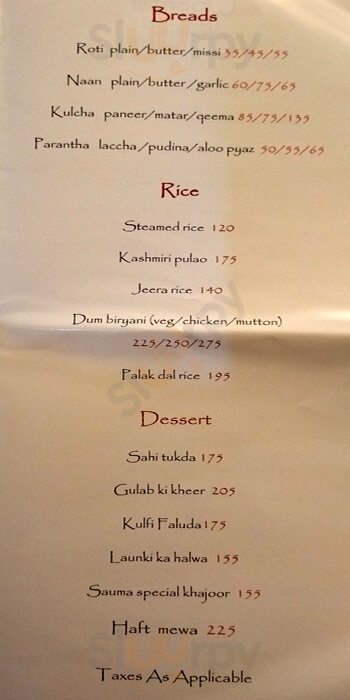 Breads
Roti plain/butter/missi 35/45/55
Naan plain/butter/garlic 60/75/65
Kulcha paneer/matar/qeema 85/75/135
Parantha laccha/pudina/aloo pyaz 50/55/65
Rice
Steamed rice 120
Kashmiri pulao 175
Jeera rice 140
Dum biryani (veg/chicken/mutton)
225/250/275
Palak dal rice 195
Dessert
Sahi tukda 175
Gulab ki kheer 205
Kulfi Faluda 175
Launki ka halwa 155
Sauma special khajoor 155
Haft mewa 225
Taxes As Applicable